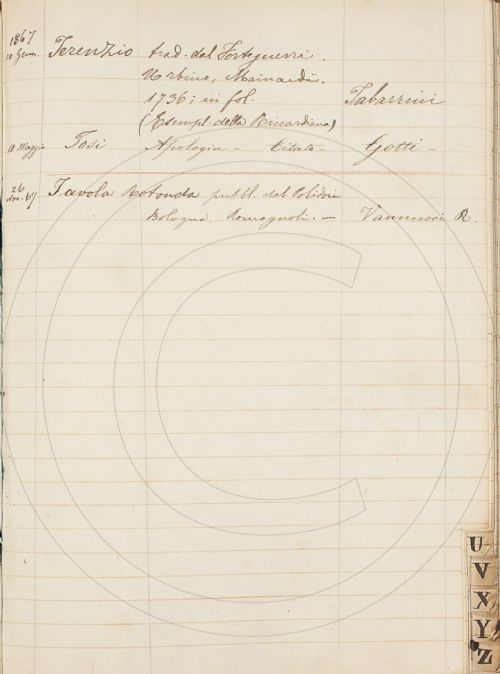 1867
10 Genn. Terenzio trad. dal Forteguerri.
Urbino, Mainardi,
1736; in fol. Tabarrini
(Esempl. della Riccardiana)
10 Maggio Tosi Apologia – Citato – Gotti –
26
Nov. 67 Tavola Rotonda pubbl. dal Polidori
Bologna, Romagnoli. — Vannucci R.
U
V
X
Y
Z